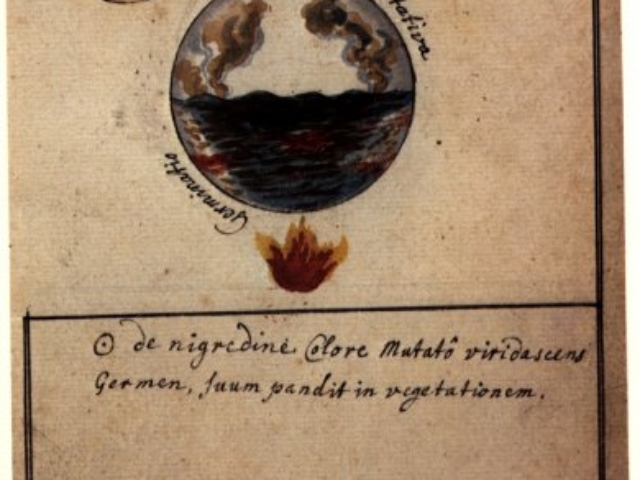 tativa
Germinatio
☉ de nigredine Colore Mutatô viridascens
Germen, suum pandit in vegetationem.